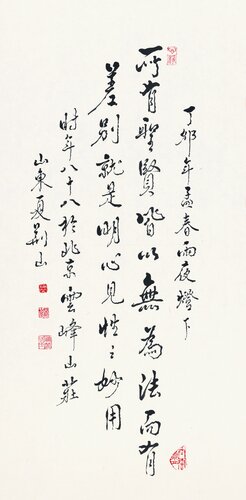 丁卯年孟春雨夜燈下
所有聖賢皆以無為法而有
差別就是明心見性之妙用
時年八十八於北京雲峰山莊
山東夏荊山